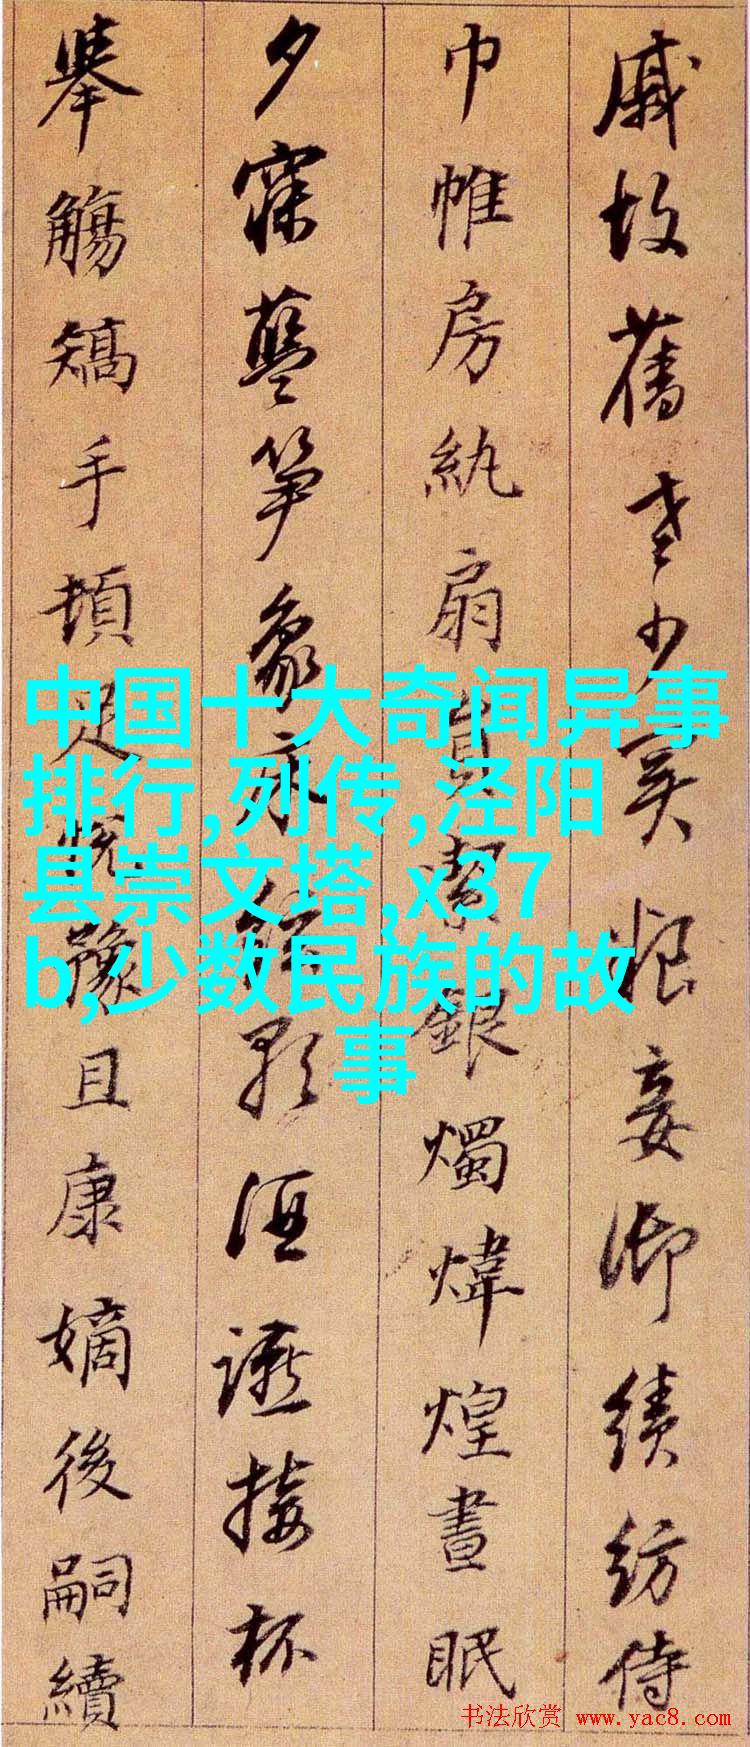 戚故舊老少異粮妾御績紡侍
巾帷房紈扇員潔銀燭煒煌晝眠
夕寐藍笋象床絃歌酒讌接杯
舉觴矯手頓足悅豫且康嫡後嗣續
中国十大奇闻异事
排行,列传,泾阳
县崇文塔,x37
b,少数民族的故
事
书法欣赏 www.yac8.com